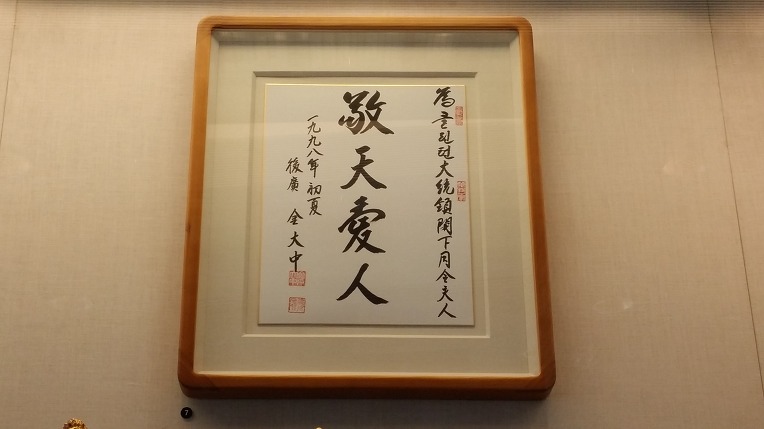 為클린턴大統領閣下同令夫人
敬天愛人
一九九八年 初夏
後廣 金大中
7